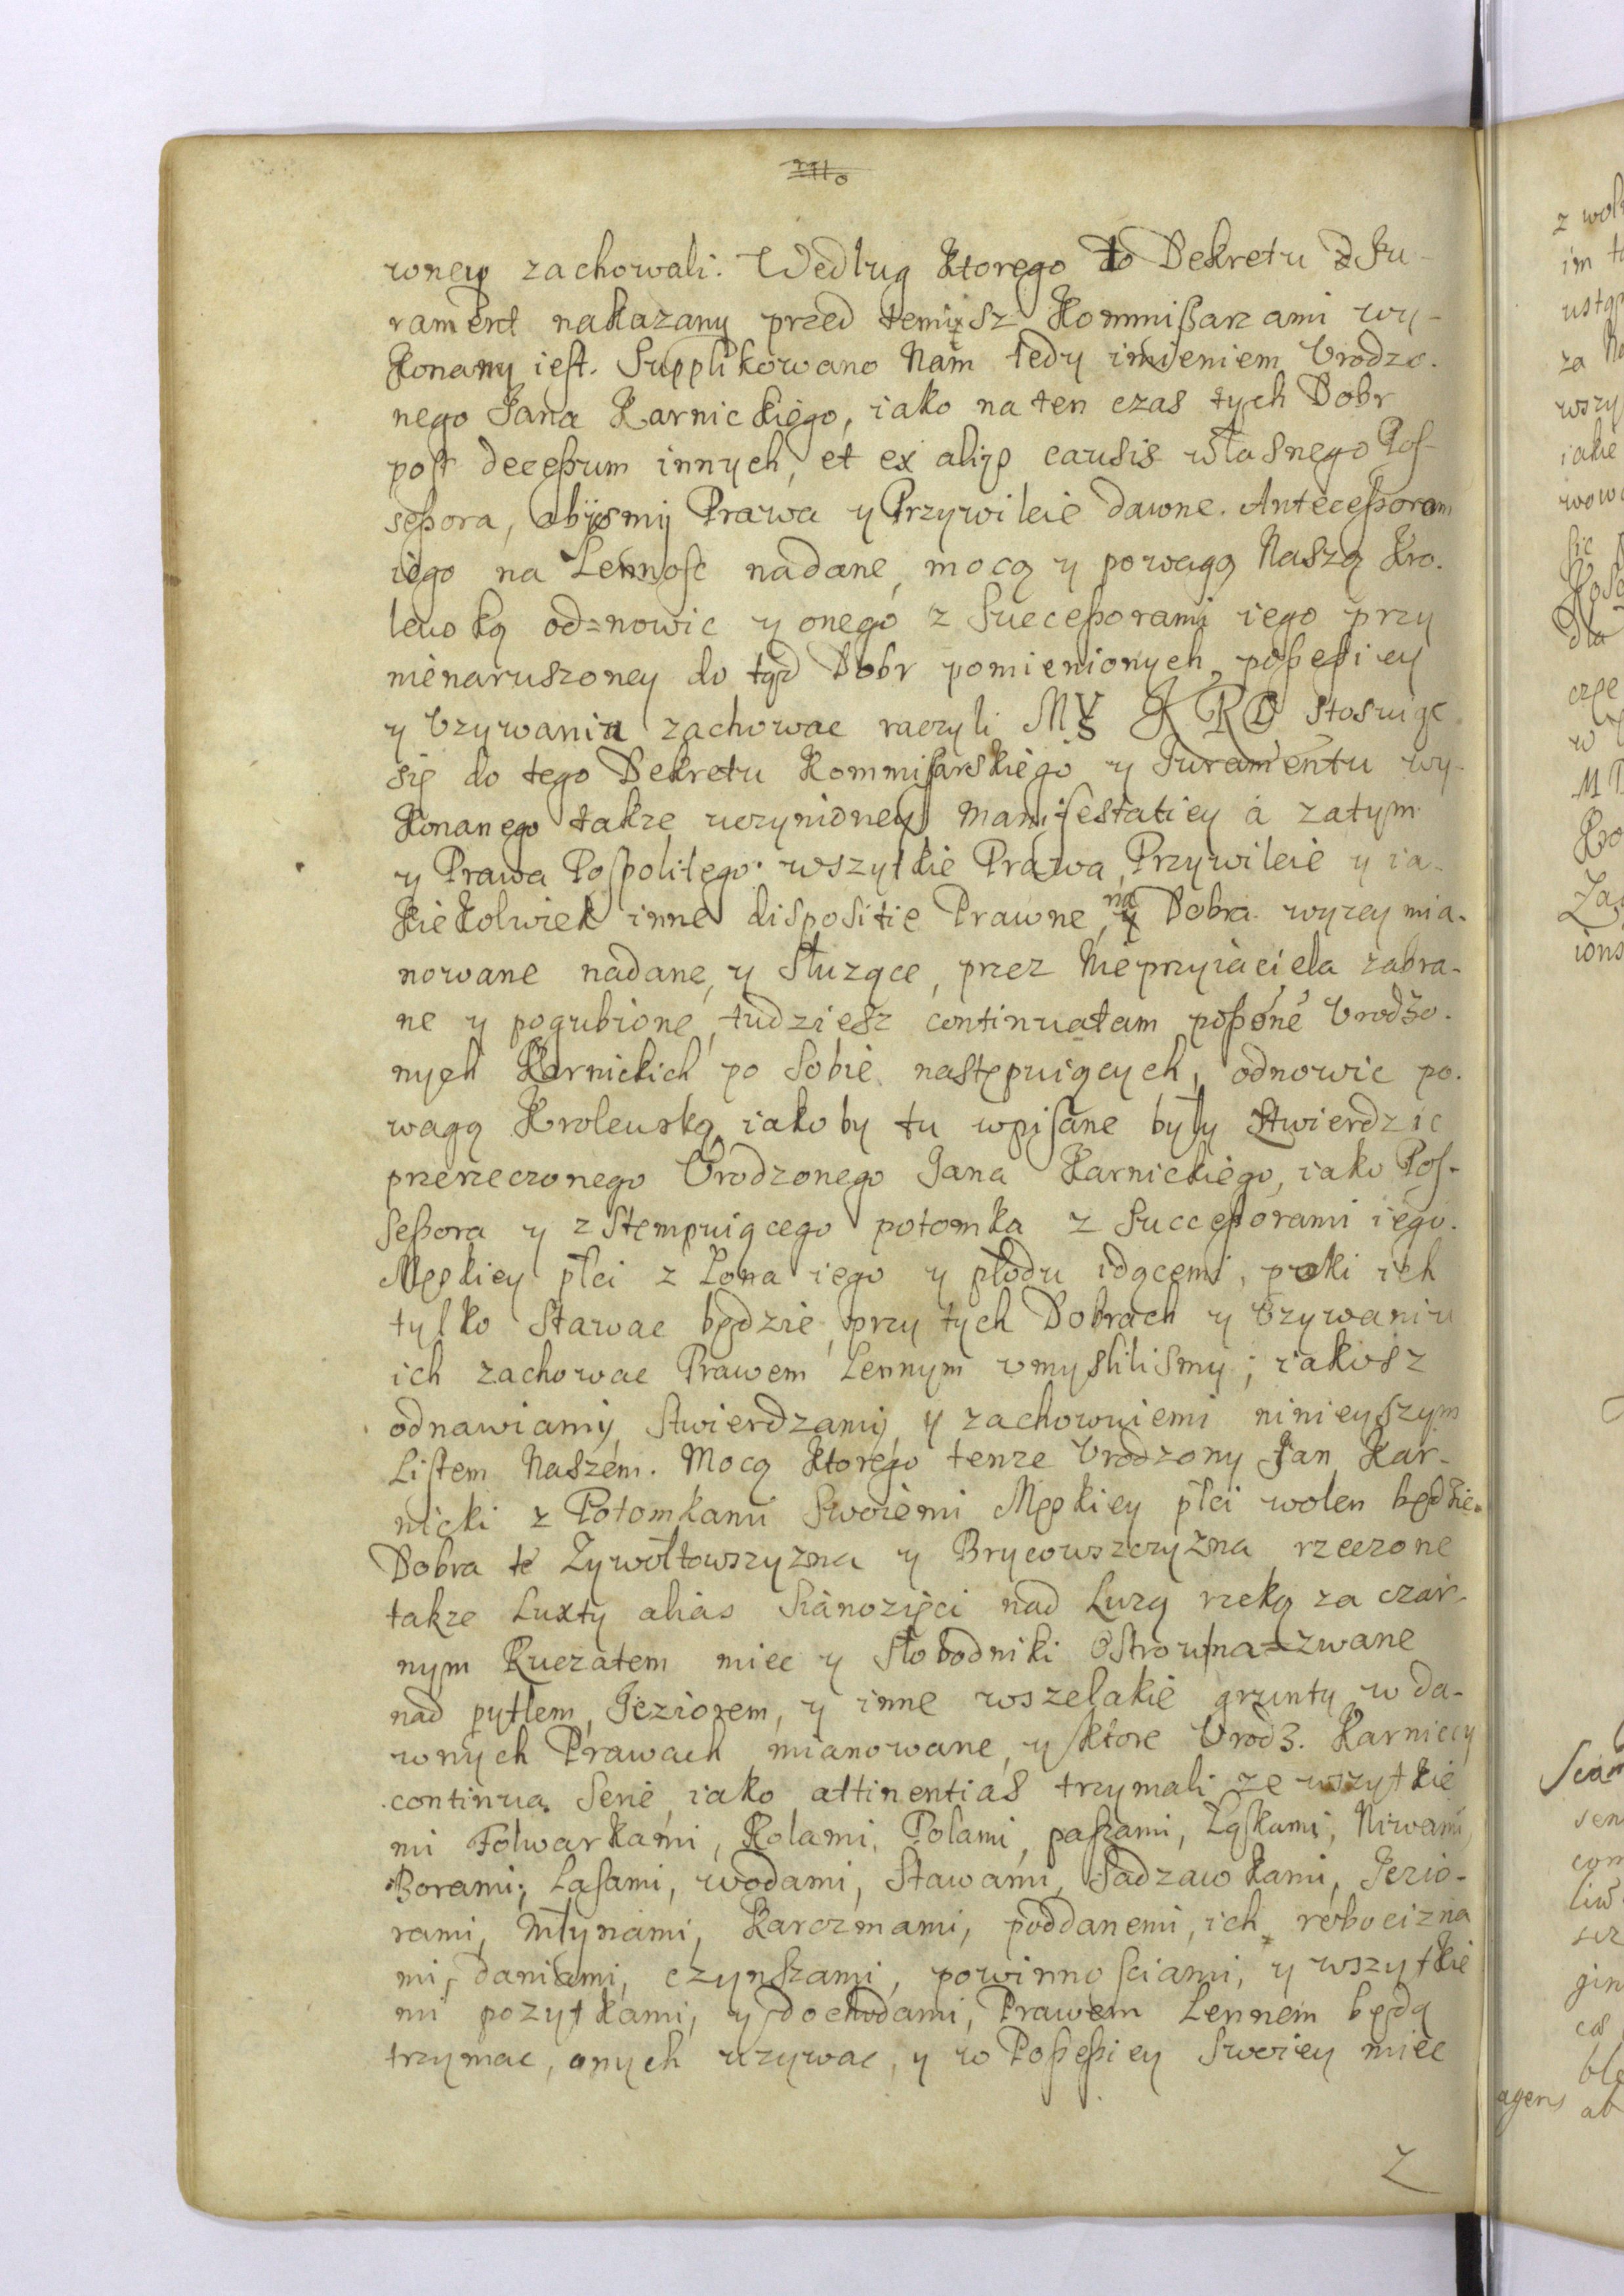 wney zachowali. Według ktorego to Dekretu Ju-
rament nakazany przed temisz Kommißarzami wy-
konany iest. Supplikowano Nam tedy imieniem Vrodzo-
nego Jana Karnickiego, iako na ten czas tych Dobr
post deceßum innych, et ex alijs causis własnego Pos-
seßora, abysmy Prawa y Przywileie dawne. Anteceßorom
iego na Lennosc nadane, mocą y powagą Naszą Kro-
lewską od=nowic y onego z Succeßorami iego przy
nienaruszoney do tąd Dobr pomienionych, poßeßiey
y Vzywaniu zachowac raczyli MY KROL stosuiąc
się do tego Dekretu Kommisarskiego y Juramentu wy-
konanego takze uczynioney Manifestatiey à zatym
y Prawa Pospolitego. wszytkie Prawa, Przywileie y ia-
kiekolwiek inne dispositie Prawne, na Dobra wyzey mia-
nowane nadane, y służące, przez Nieprzyiaciela zabra-
ne y pogubione, tudziesz continuatam poßoné Vrodzo-
nych Karnickich po sobie następuiących, odnowic po-
wagą Krolewską iakoby tu wpisane były stwierdzic
przerzeczonego Vrodzonego Jana Karnickiego, iako Pos-
seßora y zstempuiącego potomka z Succeßorami iego.
Męskiey płci z Łona iego y płodu idącemi, poki ich
tylko stawac będzie, przy tych Dobrach y Vzywaniu
ich zachowac Prawem Lennym vmyslilismy; iakosz
odnawiamy, stwierdzamy, y zachowuiemi ninieyszym
Listem Naszem. Mocą ktorego tenze Vrodzony Jan Kar-
nicki z Potomkami Swoiemi Męskiey płci wolen będzie.
Dobra te Zywołtowszyzna y Brycowszczyzna rzeczone
takze Luxty alias Sianozięci nad Luzą rzeką za czar-
nym Ruczaiem miec y Słobodniki Ostrow na=zwane
nad pytlem, Jeziorem, y inne wszelakie grunty w da-
wnych Prawach mianowane, y ktore Vrodz. Karniccy
continua Serie, iako attinentias trzymali ze wszytkie
mi Folwarkami, Rolami, Polami, paszami, Ląskami, Niwami,
Borami, Lasami, wodami, Stawami, Sadzawkami, Jezio-
rami, Młynami, Karczmami, poddanemi, ich robocizna
mi, daniami, czynszami, powinnosciami, y wszytkie
mi pozytkami, y dochodami, Prawem Lennem będą
trzymac, onych uzywac, y w Poßeßiey Swoiey miec